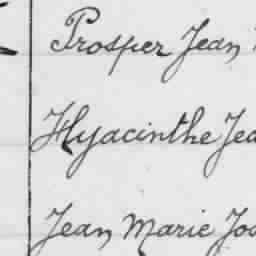 Prosper Jean
Hyacinthe Jea
Jean Marie Jos